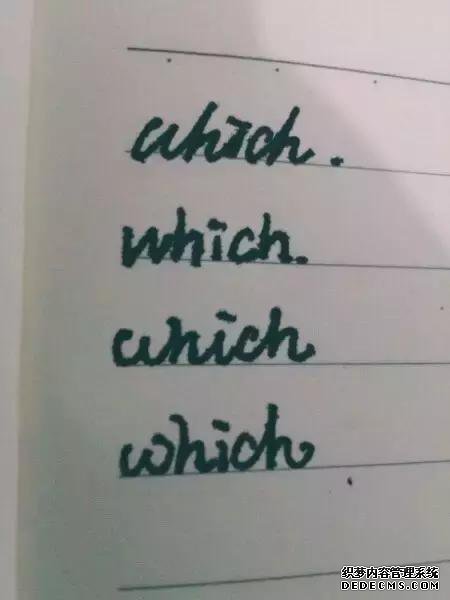 which.
which.
which
which
织梦内容管理系统
DEDECMS.COM